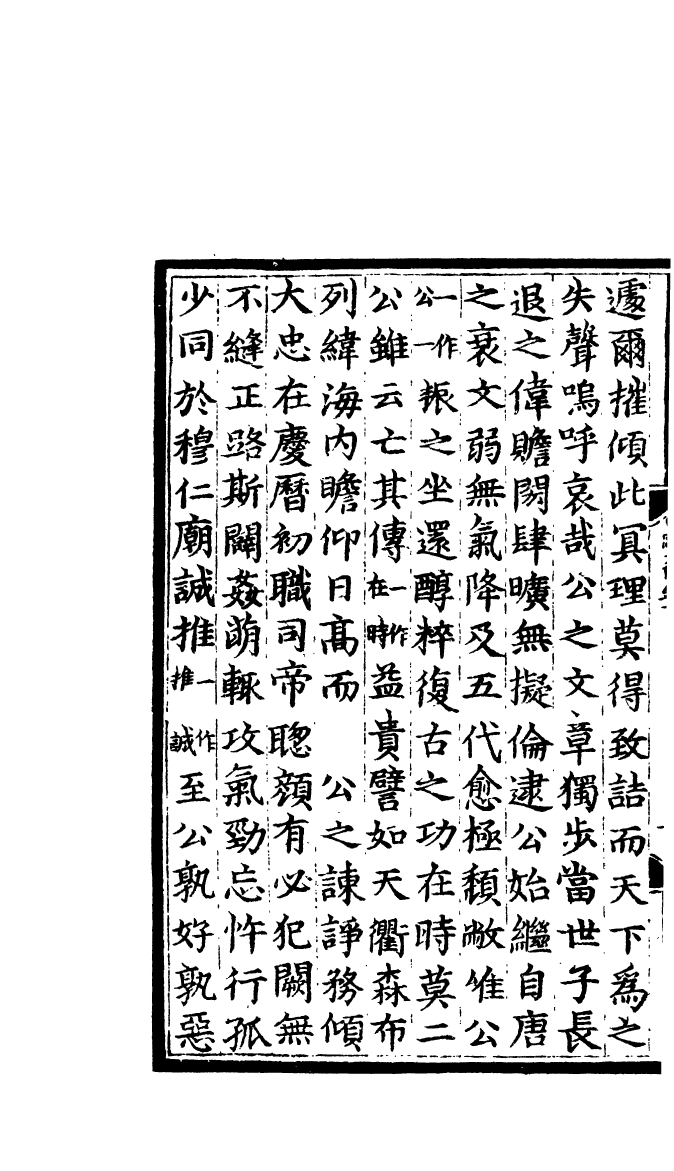 遽爾摧傾此冥理莫得致詰而天下爲之
失聲嗚呼哀哉公之文章獨步當世子長
退之偉贍閎肆曠無擬倫逮公始繼自唐
之衰文弱無氣降及五代愈極頹敝唯公
一作公一振之坐還醇粹復古之功在時莫二
公雖云亡其傳一作在時益貴譬如天衢森布
列緯海内瞻仰日髙而　公之諫諍務傾
大忠在慶曆初職司帝聰顔有必犯闕無
不縫正路斯闢姦萌輙攻氣勁忘忤行孤
少同於穆仁廟誠推一作推誠至公孰好孰惡